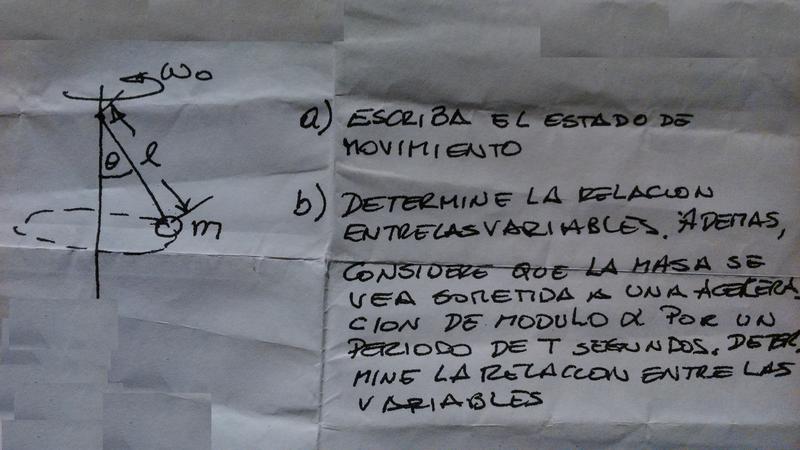 ω₀
θ
l
m
a) ESCRIBA EL ESTADO DE
MOVIMIENTO
b) DETERMINE LA RELACION
ENTRE LAS VARIABLES. ADEMAS,
CONSIDERE QUE LA MASA SE
VEA SOMETIDA A UNA ACELERA-
CION DE MODULO α POR UN
PERIODO DE T SEGUNDOS. DETER-
MINE LA RELACCION ENTRE LAS
VARIABLES